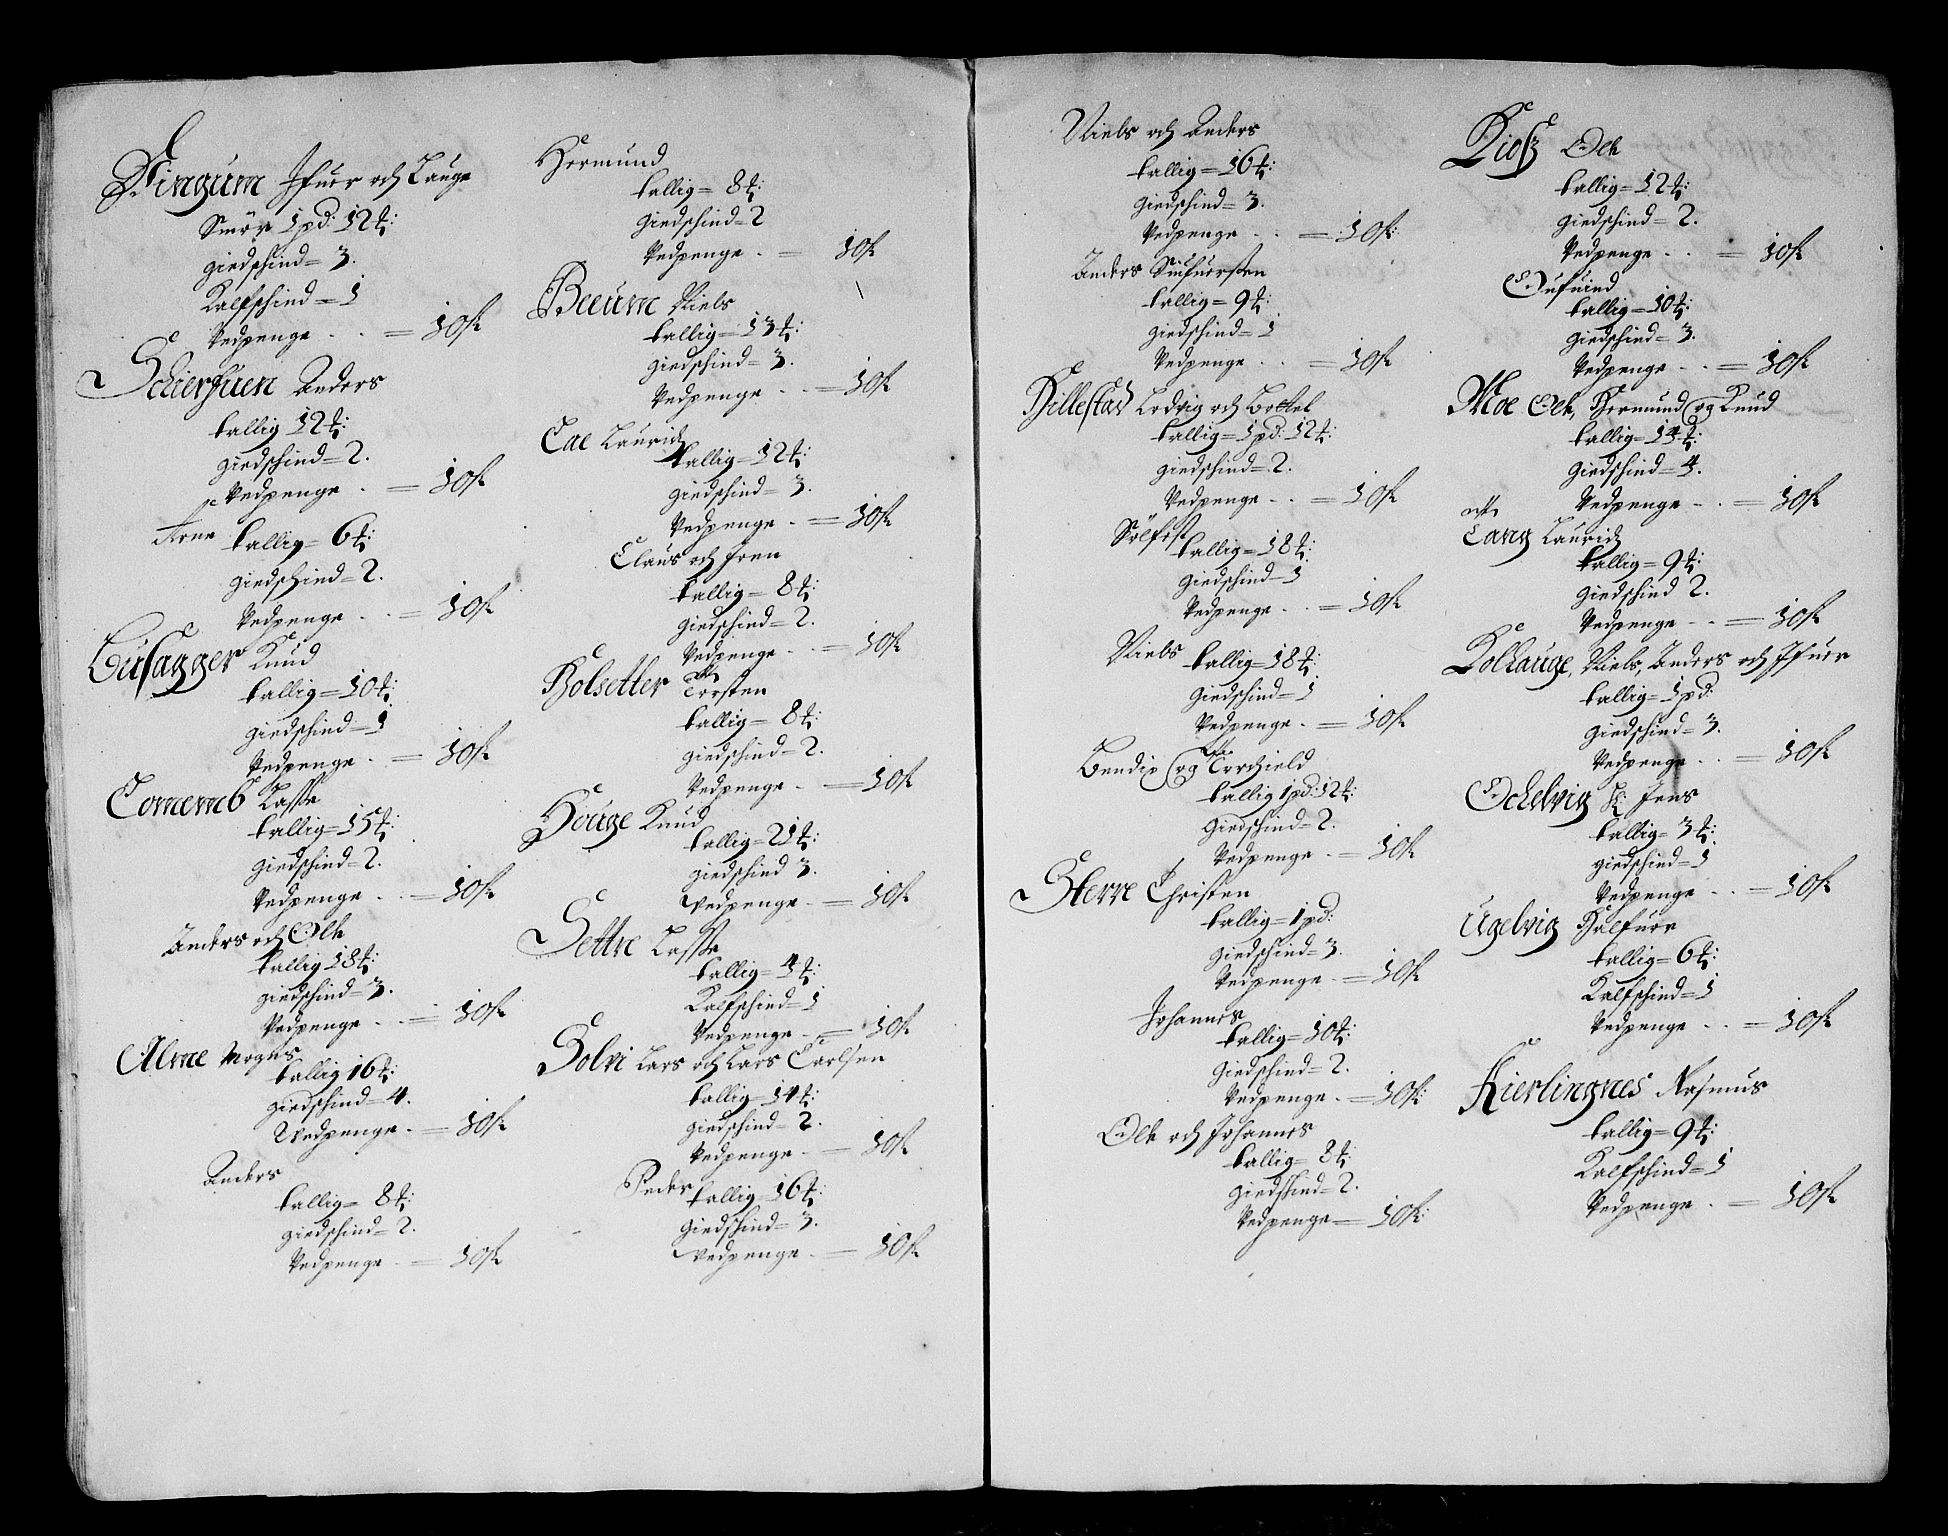 Ringum Ifuer och Lauge
Smør 1 pd: 12 ℔:
giedschind = 3.
Kalfschind = 1
Vedpenge . . = 10 ſk
Schierfuen Anders
tallig 12 ℔:
giedschind = 2.
Vedpenge . = 10 ſk
Arne tallig = 6 ℔:
giedschind = 2.
Vedpenge . . = 10 ſk
Knud
tallig = 10 ℔:
giedschind = 1
Vedpenge . = 10 ſk
Lasse
tallig = 15 ℔:
giedschind = 2.
Vedpenge . . = 10 ſk
Anders och Ole
tallig 18 ℔:
giedschind = 3.
Vedpenge . . = 10 ſk
Alme Mogns
tallig 16 ℔:
giedschind = 4.
Vedpenge . = 10 ſk
Anders
tallig = 8 ℔:
giedschind = 2.
Vedpenge . = 10 ſk
Hermund
tallig = 8 ℔:
giedschind = 2
Vedpenge . = 10 ſk
Beeum Niels
tallig = 13 ℔:
giedschind = 3.
Vedpenge . . = 10 ſk
Eae Lauridz
tallig = 12 ℔:
giedschind = 3.
Vedpenge . = 10 ſk
Claus och Joen
tallig = 8 ℔:
giedschind = 2.
Vedpenge . . = 10 ſk
Bolsetter Torsten
tallig = 8 ℔:
giedschind = 2.
Vedpenge . = 10 ſk
Houge Knud
tallig = 21 ℔:
giedschind 3.
Vedpenge . = 10 ſk
Settre Lasse
tallig = 4 ℔:
Kalfschind = 1
Vedpenge . = 10 ſk
Solvi Lars och Lars Carlsen
tallig = 14 ℔:
giedschind = 2.
Vedpenge . = 10 ſk
Peder tallig = 16 ℔:
giedschind = 3.
Vedpenge . = 10 ſk
Niels och Anders
tallig = 16 ℔:
giedschind = 3.
Vedpenge . . = 10 ſk:
Anders Siufuersen
tallig = 9 ℔:
giedschind = 1
Vedpenge . . = 10 ſk
Hillestad Lodvig och Bottel
tallig = 1 pd: 12 ℔:
giedschind = 2.
Vedpenge . . = 10 ſk
Sølfist tallig = 18 ℔:
giedschind = 1
Vedpenge . . = 10 ſk
Niels tallig = 18 ℔:
giedschind = 1
Vedpenge . = 10 ſk
Bendix og Torchield
tallig 1 pd: 12 ℔:
giedschind = 2.
Vedpenge . = 10 ſk
Sterre Christen
tallig = 1 pd:
giedschind = 3.
Vedpenge . = 10 ſk
Johannes
tallig = 10 ℔:
giedschind = 2.
Vedpenge . = 10 ſk:
Ole och Johannes
tallig = 8 ℔:
giedschind = 2.
Vedpenge = 10 ſk:
Ole
tallig = 12 ℔:
giedschind = 2.
Vedpenge . . = 10 ſk
Eufuind
tallig = 10 ℔:
giedschind = 3.
Vedpenge . . = 10 ſk
Moe Ole, Hermund og Knud
tallig = 14 ℔:
giedschind = 4.
Vedpenge . . = 10 ſk
Lang Lauridz
tallig = 9 ℔:
giedschind 2.
Vedpenge . . = 10 ſk
Kolhauge, Niels, Anders och Ifuer
tallig = 1 pd:
giedschind = 3.
Vedpenge . . = 10 ſk
Ochelvig Jens
tallig = 3 ℔:
giedschind = 1
Vedpenge . . = 10 ſk
Ugelvig Halfuor
tallig = 6 ℔:
Kalfschind = 1
Vedpenge . . = 10 ſk
Kierlingnes Rasmus
tallig = 9 ℔:
Kalfschind = 1
Vedpenge . = 10 ſk